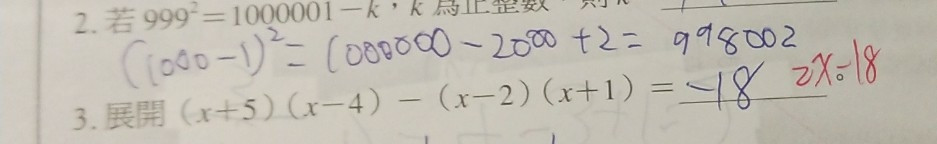 2. 若 999²=1000001－k，k 為正整數
(1000-1)²= 1000000-2000+2= 998002
3. 展開 (x+5)(x-4)－(x-2)(x+1)= -18 2x-18